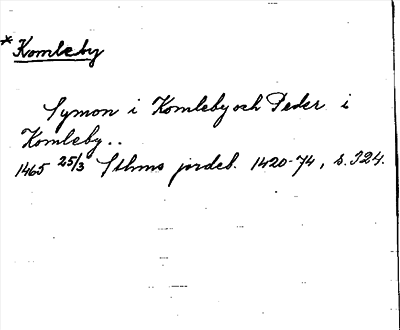 *Komleby
Symon i Komleby och Peder i
Komleby..
1465 25/3 Sthms jordeb. 1420-74, s. 324.